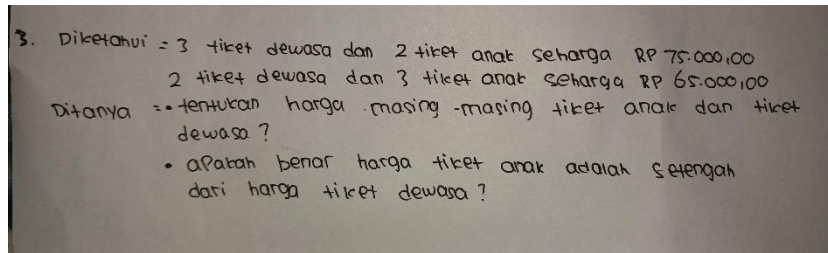 3. Diketahui = 3 tiket dewasa dan 2 tiket anak seharga RP 75.000,00
2 tiket dewasa dan 3 tiket anak seharga RP 65.000,00
Ditanya = • tentukan harga masing-masing tiket anak dan tiket
dewasa ?
• apakah benar harga tiket anak adalah setengah
dari harga tiket dewasa ?